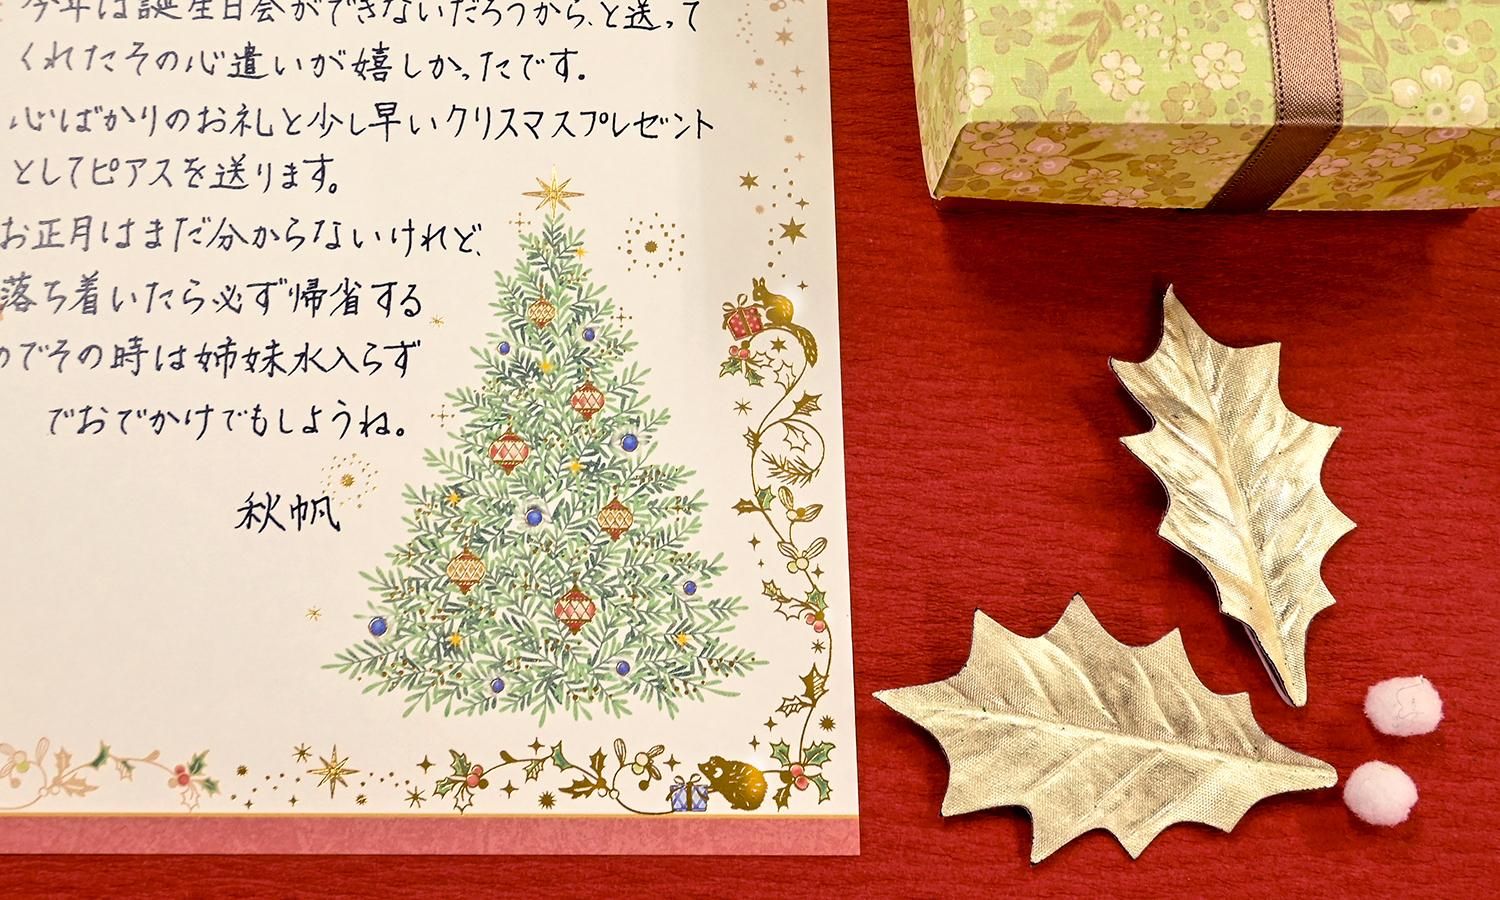 今年は誕生日会ができないだろうから、と送って
くれたその心遣いが嬉しかったです。
心ばかりのお礼と少し早いクリスマスプレゼント
としてピアスを送ります。
お正月はまだ分からないけれど、
落ち着いたら必ず帰省する
のでその時は姉妹水入らず
でおでかけでもしようね。
秋帆